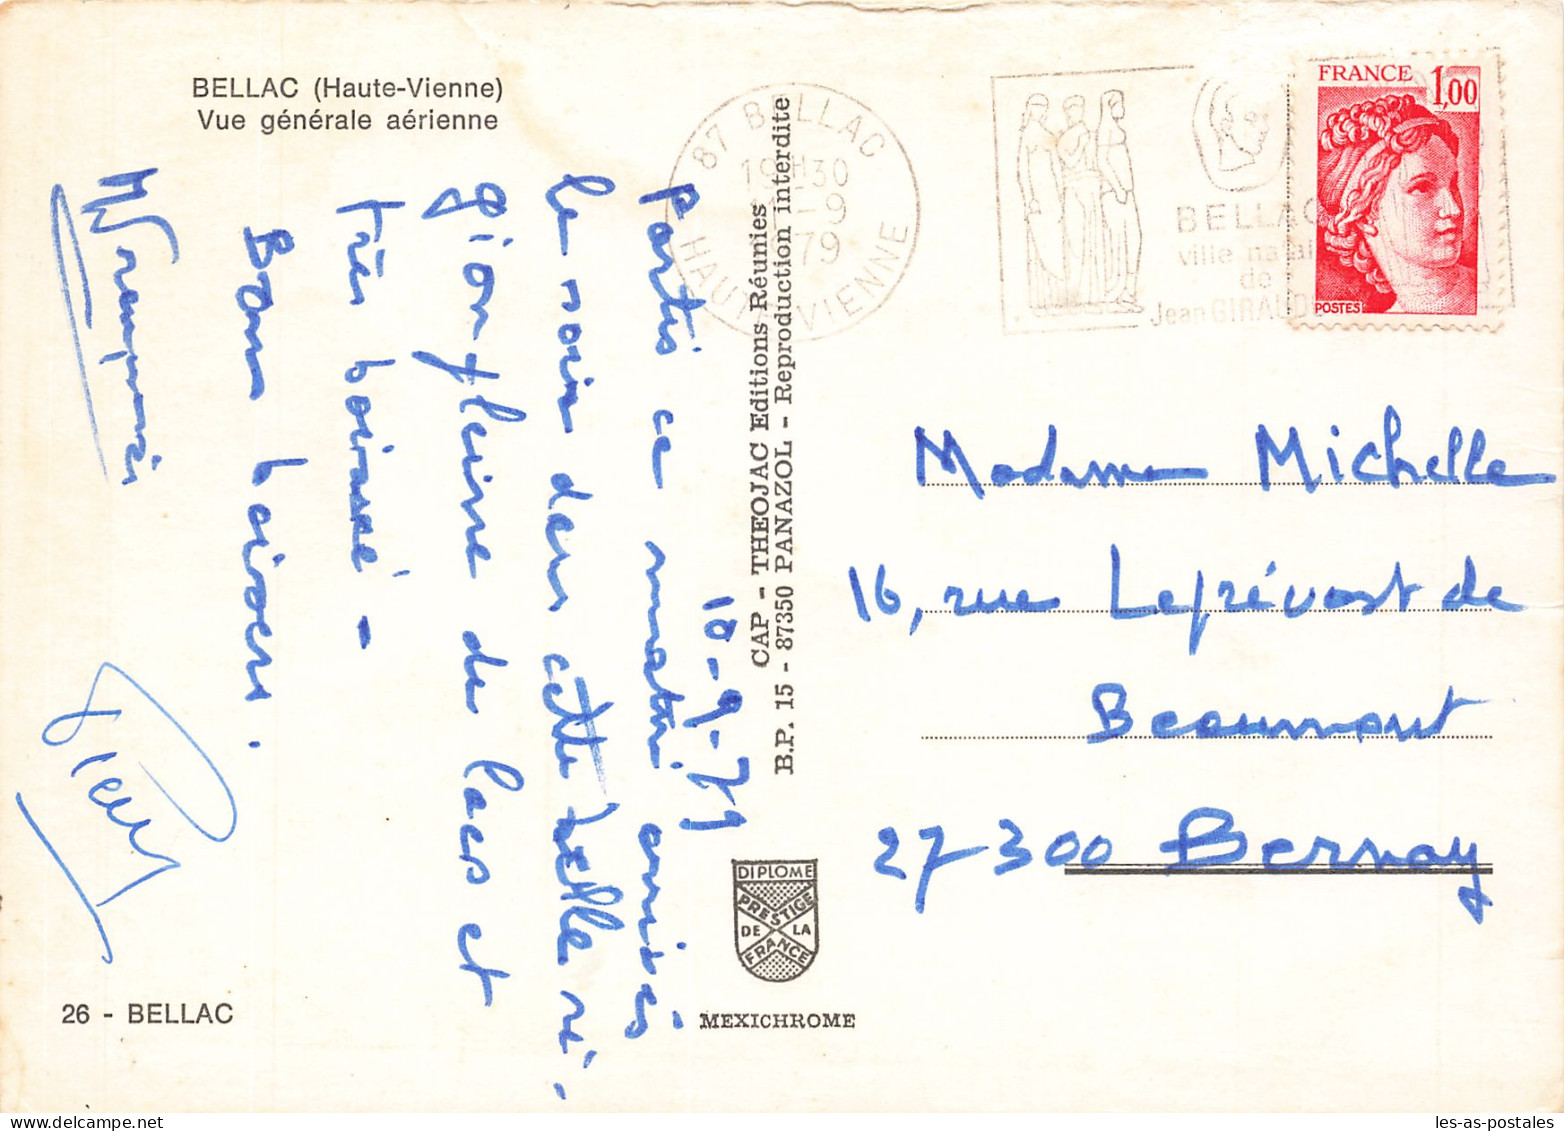 BELLAC (Haute-Vienne)
Vue générale aérienne
10-9-79
partis ce matin arrivés
le soir dans cette belle ré-
gion pleine de lacs et
très boisée -
Bons baisers.
Pierre
26 - BELLAC
CAP - THEOJAC Editions Réunies
B.P. 15 - 87350 PANAZOL - Reproduction interdite
DIPLOME
PRESTIGE
DE LA
FRANCE
MEXICHROME
87 BELLAC
19H30
-9
79
HAUTE-VIENNE
BELLAC
ville natal
de
Jean GIRAUDO
FRANCE
1,00
POSTES
Madame Michelle
16, rue Leprévost de
Beaumont
27300 Bernay
les-as-postales